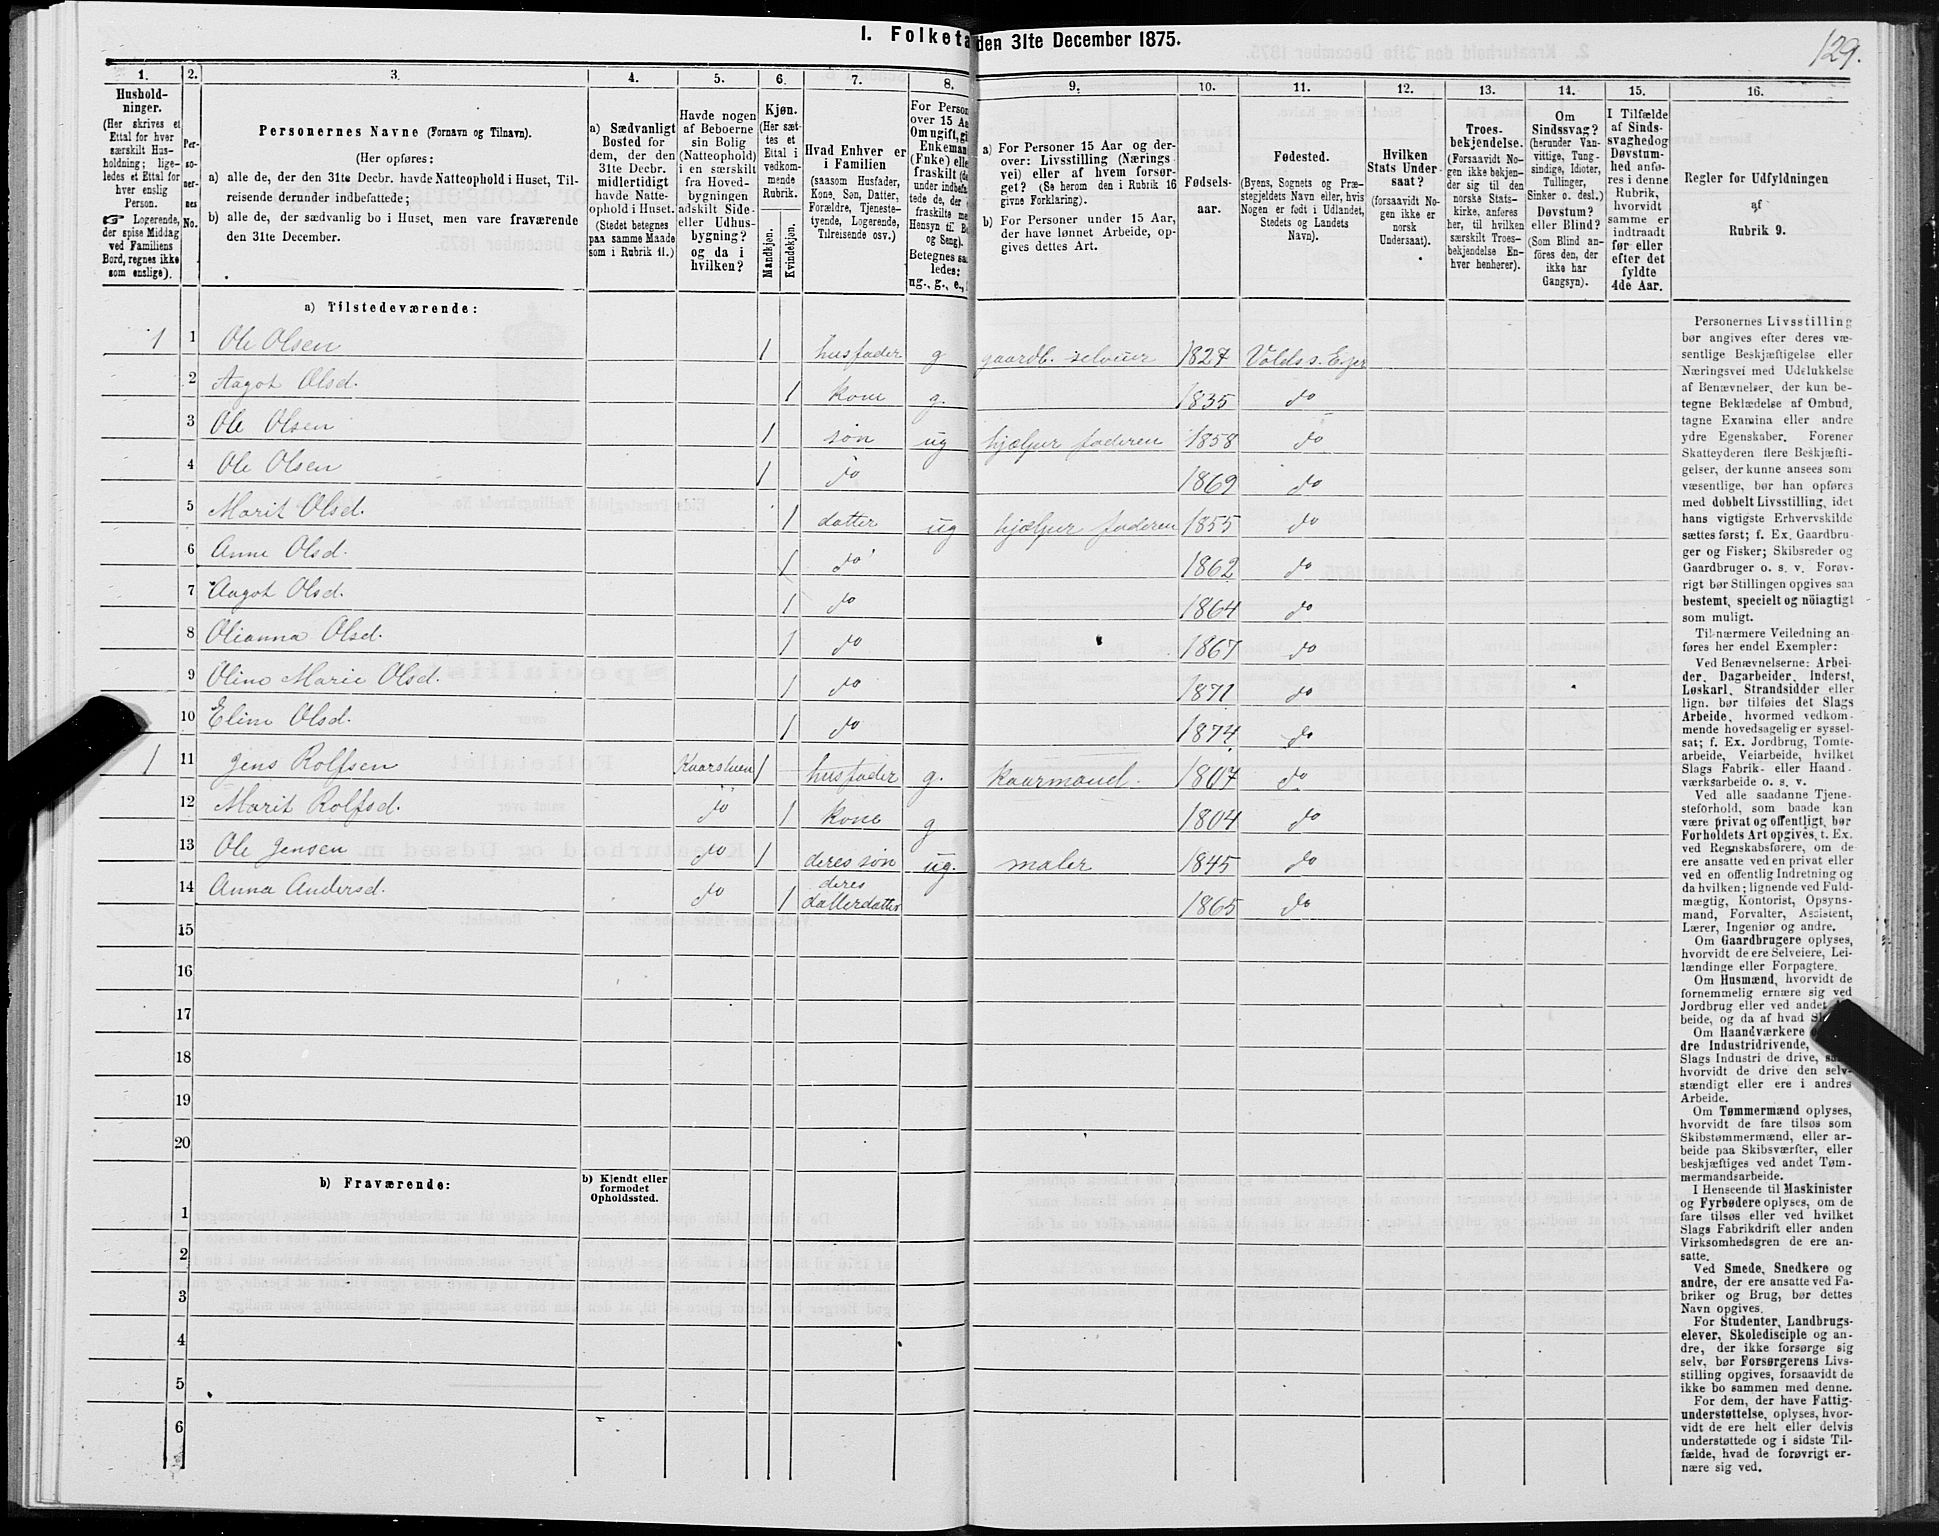 I. Folketa
den 31te December 1875.
129.
1.
Hushold-
ninger.
(Her skrives et
Ettal for hver
særskilt Hus-
holdning; lige-
ledes et Ettal for
hver enslig
Person.
☞ Logerende,
der spise Middag
ved Familiens
Bord, regnes ikke
som enslige).
2.
Per-
so-
ner-
nes
No.
3.
Personernes Navne (Fornavn og Tilnavn).
(Her opføres:
a) alle de, der den 31te Decbr. havde Natteophold i Huset, Til-
reisende derunder indbefattede;
b) alle de, der sædvanlig bo i Huset, men vare fraværende
den 31te December.
4.
a) Sædvanligt
Bosted for
dem, der den
31te Decbr.
midlertidigt
havde Natte-
ophold i Huset.
(Stedet betegnes
paa samme Maade
som i Rubrik 11.)
5.
Havde nogen
af Beboerne
sin Bolig
(Natteophold)
i en særskilt
fra Hoved-
bygningen
adskilt Side-
eller Udhus-
bygning?
og da i
hvilken?
6.
Kjøn.
(Her sæt-
tes et
Ettal i
vedkom-
mende
Rubrik.
Mandkjøn.
Kvindekjøn.
7.
Hvad Enhver er
i Familien
(saasom Husfader,
Kone, Søn, Datter,
Forældre, Tjeneste-
tyende, Logerende,
Tilreisende osv.)
8.
For Person
over 15 Aa
Om ugift, gi
Enkeman
(Fnke) elle
fraskilt (de
under indbefa
tede de, de
fraskilte me
Hensyn til Bo
og Seng).
Betegnes saa
ledes:
ug., g., e., f
9.
a) For Personer 15 Aar og der-
over: Livsstilling (Nærings
vei) eller af hvem forsør-
get? (Se herom den i Rubrik 16
givne Forklaring).
b) For Personer under 15 Aar,
der have lønnet Arbeide, op-
gives dettes Art.
10.
Fødsels-
aar.
11.
Fødested.
(Byens, Sognets og Præ-
stegjeldets Navn eller, hvis
Nogen er født i Udlandet,
Stedets og Landets
Navn).
12.
Hvilken
Stats Under-
saat?
(forsaavidt No-
gen ikke er
norsk
Undersaat).
13.
Troes-
bekjendelse.
(Forsaavidt No-
gen ikke bekjen-
der sig til den
norske Stats-
kirke, anføres
her, til hvilken
særskilt Troes-
bekjendelse En-
hver henhører).
14.
Om
Sindssvag?
(herunder Van-
vittige, Tung-
sindige, Idioter,
Tullinger,
Sinker o. desl.)
Døvstum?
eller Blind?
(Som Blind an-
føres den, der
ikke har
Gangsyn).
15.
I Tilfælde
af Sinds-
svaghed og
Døvstum-
hed anfø-
res i denne
Rubrik,
hvorvidt
samme er
indtraadt
før eller
efter det
fyldte
4de Aar.
16.
Regler for Udfyldningen
af
Rubrik 9.
a) Tilstedeværende:
1 1 Ole Olsen 1 husfader g gaardb. selveier 1827 Volds s. Ejer
2 Aagot Olsd. 1 kone g. 1835 do
3 Ole Olsen 1 søn ug hjælper faderen 1858 do
4 Ole Olsen 1 do 1869 do
5 Marit Olsd. 1 datter ug hjælper faderen 1855 do
6 Anne Olsd. 1 do 1862 do
7 Aagot Olsd. 1 do 1864 do
8 Olianna Olsd. 1 do 1867 do
9 Oline Marie Olsd. 1 do 1871 do
10 Eline Olsd. 1 do 1874 do
1 11 Jens Rolfsen Kaarstuen 1 husfader g. kaarmand. 1807 do
12 Marit Rolfsd. do 1 kone g 1804 do
13 Ole Jensen do 1 deres søn ug. maler 1845 do
14 Anna Andersd. do 1 deres
datterdatter 1865 do
15
16
17
18
19
20
b) Fraværende:
b) Kjendt eller
formodet
Opholdssted.
1
2
3
4
5
6
Personernes Livsstilling
bør angives efter deres væ-
sentlige Beskjæftigelse eller
Næringsvei med Udelukkelse
af Benævnelser, der kun be-
tegne Beklædelse af Ombud,
tagne Examina eller andre
ydre Egenskaber. Forener
Skatteyderen flere Beskjæfti-
gelser, der kunne ansees som
væsentlige, bør han opføres
med dobbelt Livsstilling, idet
hans vigtigste Erhvervskilde
sættes først; f. Ex. Gaardbru-
ger og Fisker; Skibsreder og
Gaardbruger o. s. v. Forøv-
rigt bør Stillingen opgives saa
bestemt, specielt og nöiagtigt
som muligt.
Til nærmere Veiledning an-
føres her endel Exempler:
Ved Benævnelserne: Arbei-
der, Dagarbeider, Inderst,
Løskarl, Strandsidder eller
lign. bør tilføies det Slags
Arbeide, hvormed vedkom-
mende hovedsagelig er syssel-
sat; f. Ex. Jordbrug, Tomte-
arbeide, Veiarbeide, hvilket
Slags Fabrik- eller Haand-
værksarbeide o. s. v.
Ved alle saadanne Tjene-
steforhold, som baade kan
være privat og offentligt, bør
Forholdets Art opgives, t. Ex.
ved Regnskabsførere, om de
ere ansatte ved en privat eller
ved en offentlig Indretning og
da hvilken; lignende ved Fuld-
mægtig, Kontorist, Opsyns-
mand, Forvalter, Assistent,
Lærer, Ingeniør og andre.
Om Gaardbrugere oplyses,
hvorvidt de ere Selveiere, Lei-
lændinge eller Forpagtere.
Om Husmænd, hvorvidt de
fornemmelig ernære sig ved
Jordbrug eller ved andet Ar-
beide, og da af hvad
Om Haandværkere
dre Industridrivende,
Slags Industri de drive,
hvorvidt de drive den selv-
stændigt eller ere i andres
Arbeide.
Om Tømmermænd oplyses,
hvorvidt de fare tilsøs som
Skibstømmermænd, eller ar-
beide paa Skibsværfter, eller
beskjæftiges ved andet Tøm-
mermandsarbeide.
I Henseende til Maskinister
og Fyrbødere oplyses, om de
fare tilsøs eller ved hvilket
Slags Fabrikdrift eller anden
Virksomhedsgren de ere an-
satte.
Ved Smede, Snedkere og
andre, der ere ansatte ved Fa-
briker og Brug, bør dettes
Navn opgives.
For Studenter, Landbrugs-
elever, Skoledisciple og an-
dre, der ikke forsørge sig
selv, bør Forsørgerens Livs-
stilling opgives, forsaavidt de
ikke bo sammen med denne.
For dem, der have Fattig-
understøttelse, oplyses, hvor-
vidt de ere helt eller delvis
understøttede og i sidste Til-
fælde, hvad de forøvrigt er-
nære sig ved.